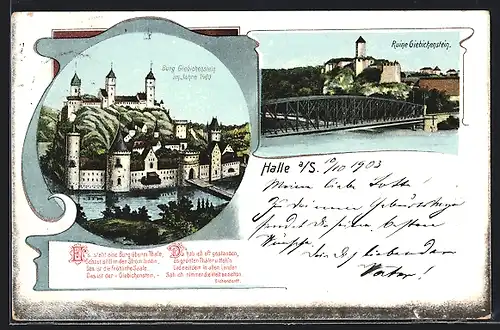 Burg Giebichenstein
im Jahre 1460
Ruine Giebichenstein.
Halle a/S. 10/10 1903
Meine liebe Lotte!
Zu Deinem Geburtstage
sendet Dir seine besten
Grüsse
Dein Dich liebender
Vater!
Da steht eine Burg über'm Thale,
Schaut still in der Strom hinein,
Das ist die fröhliche Saale,
Das ist der Giebichenstein,
Da hab ich oft gestanden,
Es grünten Thäler u. Höh'n
Und seitdem in allen Landen
Sah ich nimmer die Welt so schön
Eichendorff.